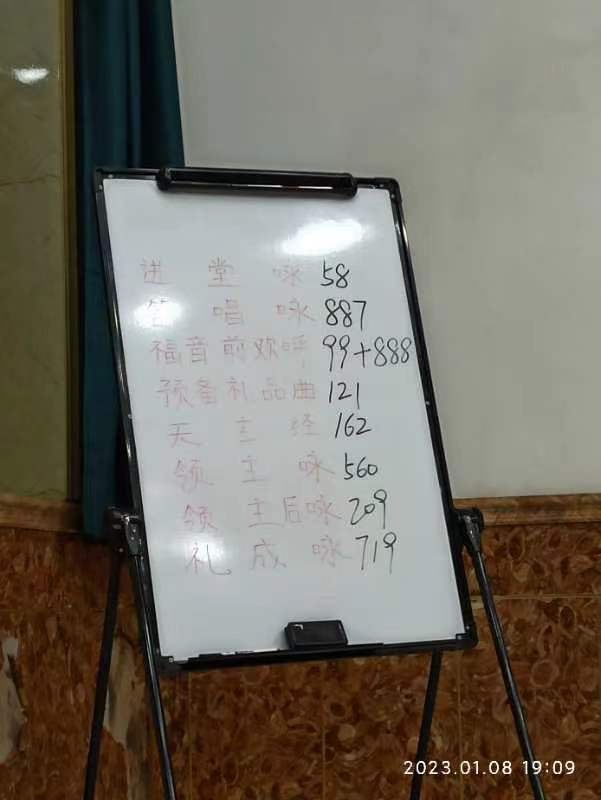 进堂咏 58
答唱咏 887
福音前欢呼 99+888
预备礼品曲 121
天主经 162
领主咏 560
领主后咏 209
礼成咏 719
2023.01.08 19:09